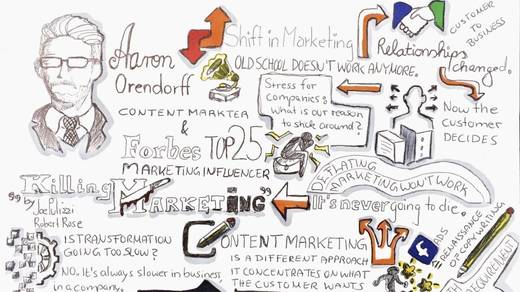 Aaron
Orendorff
CONTENT MARKTER
&
Forbes TOP 25
MARKETING INFLUENCER
Shift in Marketing
OLD SCHOOL DOESN'T WORK ANYMORE.
Relationships
changed.
CUSTOMER
TO
BUSINESS
Stress for
companies:
what is our reason
to stick around?
Now the
customer
DECIDES
MARKETING WON'T WORK
"Killing
MARKETING"
by
Joe Pulizzi
Robert Rose
It's never going to die.
IS TRANSFORMATION
GOING TOO SLOW?
NO. It's always slower in business
in a company.
CONTENT MARKETING
IS A DIFFERENT APPROACH
IT CONCENTRATES ON WHAT
THE CUSTOMER WANTS
f
ADS
RENAISSANCE
OF COPYWRITING